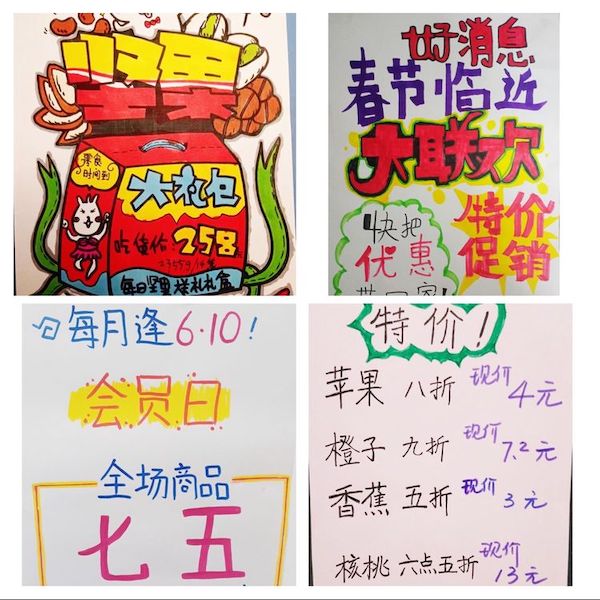 坚果
零食
时间到
大礼包
吃货价:258元
每日坚果送礼礼盒
好消息
春节临近
大联欢
快把
优惠
带回家
特价
促销
每月逢6·10!
会员日
全场商品
七五
特价!
苹果 八折 现价4元
橙子 九折 现价7.2元
香蕉 五折 现价3元
核桃 六点五折 现价13元